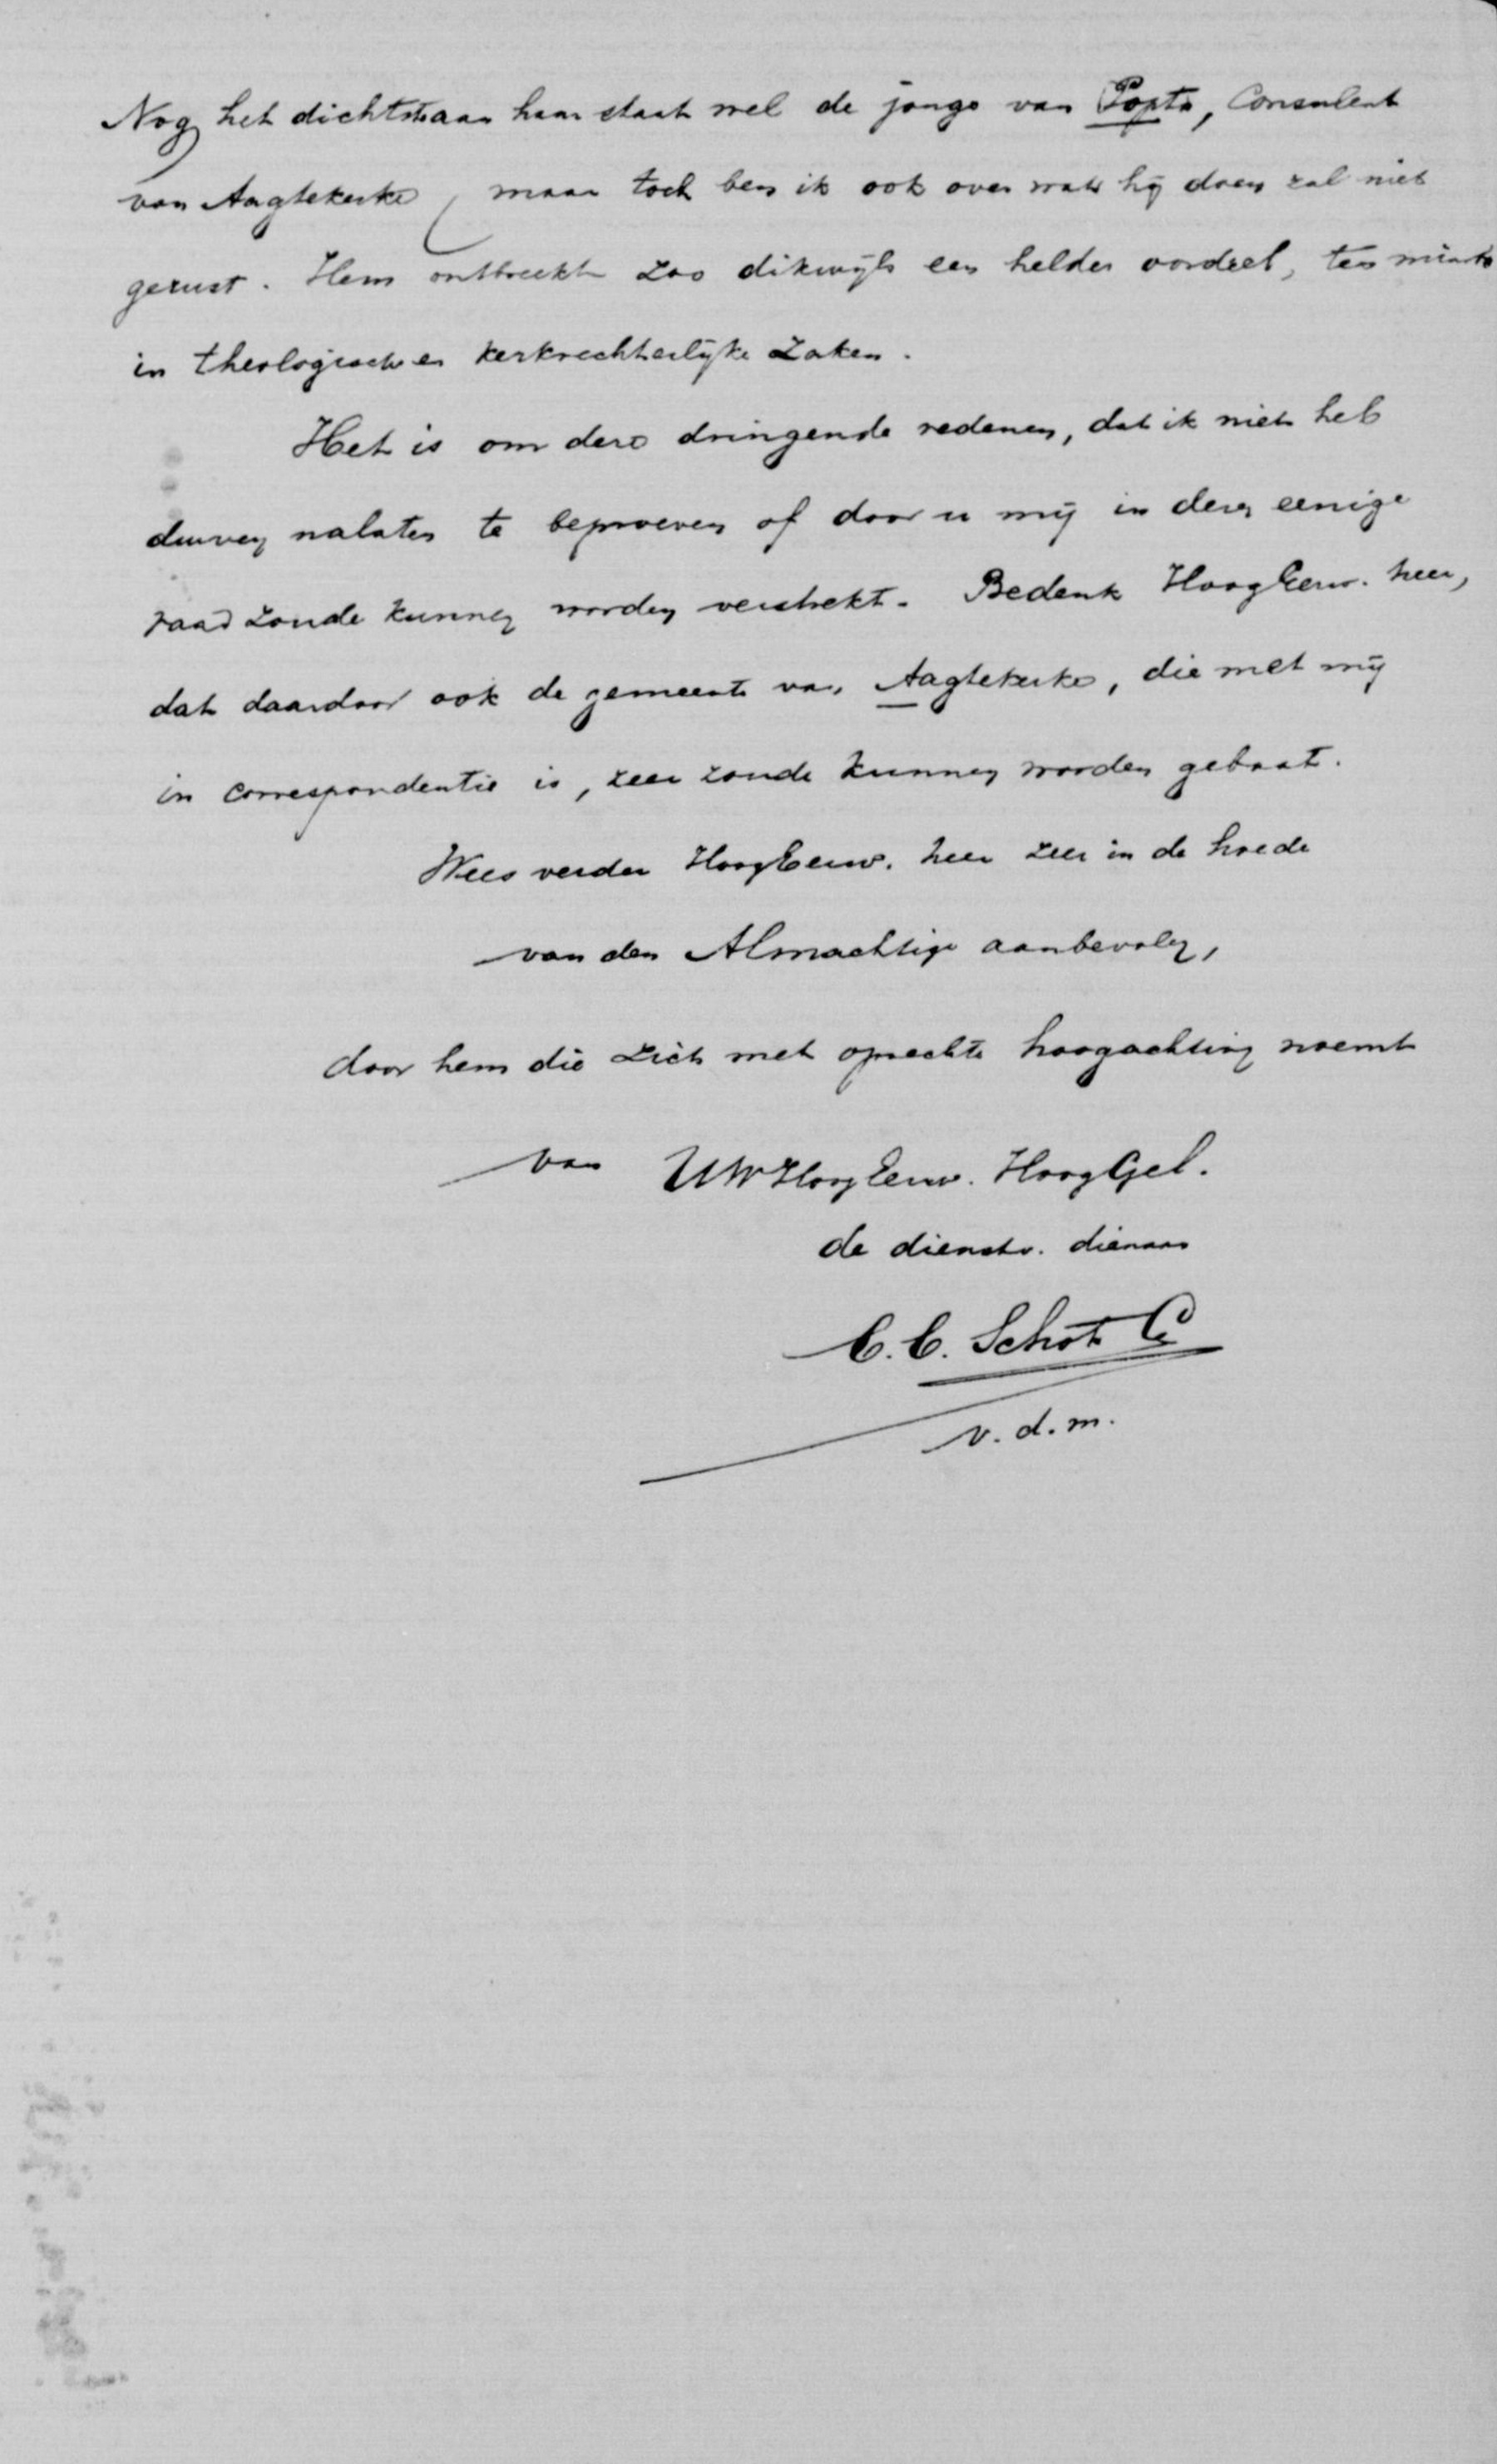 Nog het dichtst aan haar staat wel de jonge van Popta, Consulent
van Aagtekerke, maar toch ben ik ook over wat hij doen zal niet
gerust. Hem ontbreekt zoo dikwijls een helder oordeel, ten minste
in theologische en kerkrechterlijke zaken.
Het is om deze dringende redenen, dat ik niet heb
durven nalaten te beproeven of door u mij in dezen eenige
raad zoude kunnen worden verstrekt. Bedenk HoogEerw. heer,
dat daardoor ook de gemeente van Aagtekerke, die met mij
in correspondentie is, zeer zoude kunnen worden gebaat.
Wees verder HoogEerw. heer zeer in de hoede
van den Almachtige aanbevolen,
door hem die zich met oprechte hoogachting noemt
van UWHoogEerw. HoogGel.
de dienstv. dienaar
C. C. Schot C
v. d. m.